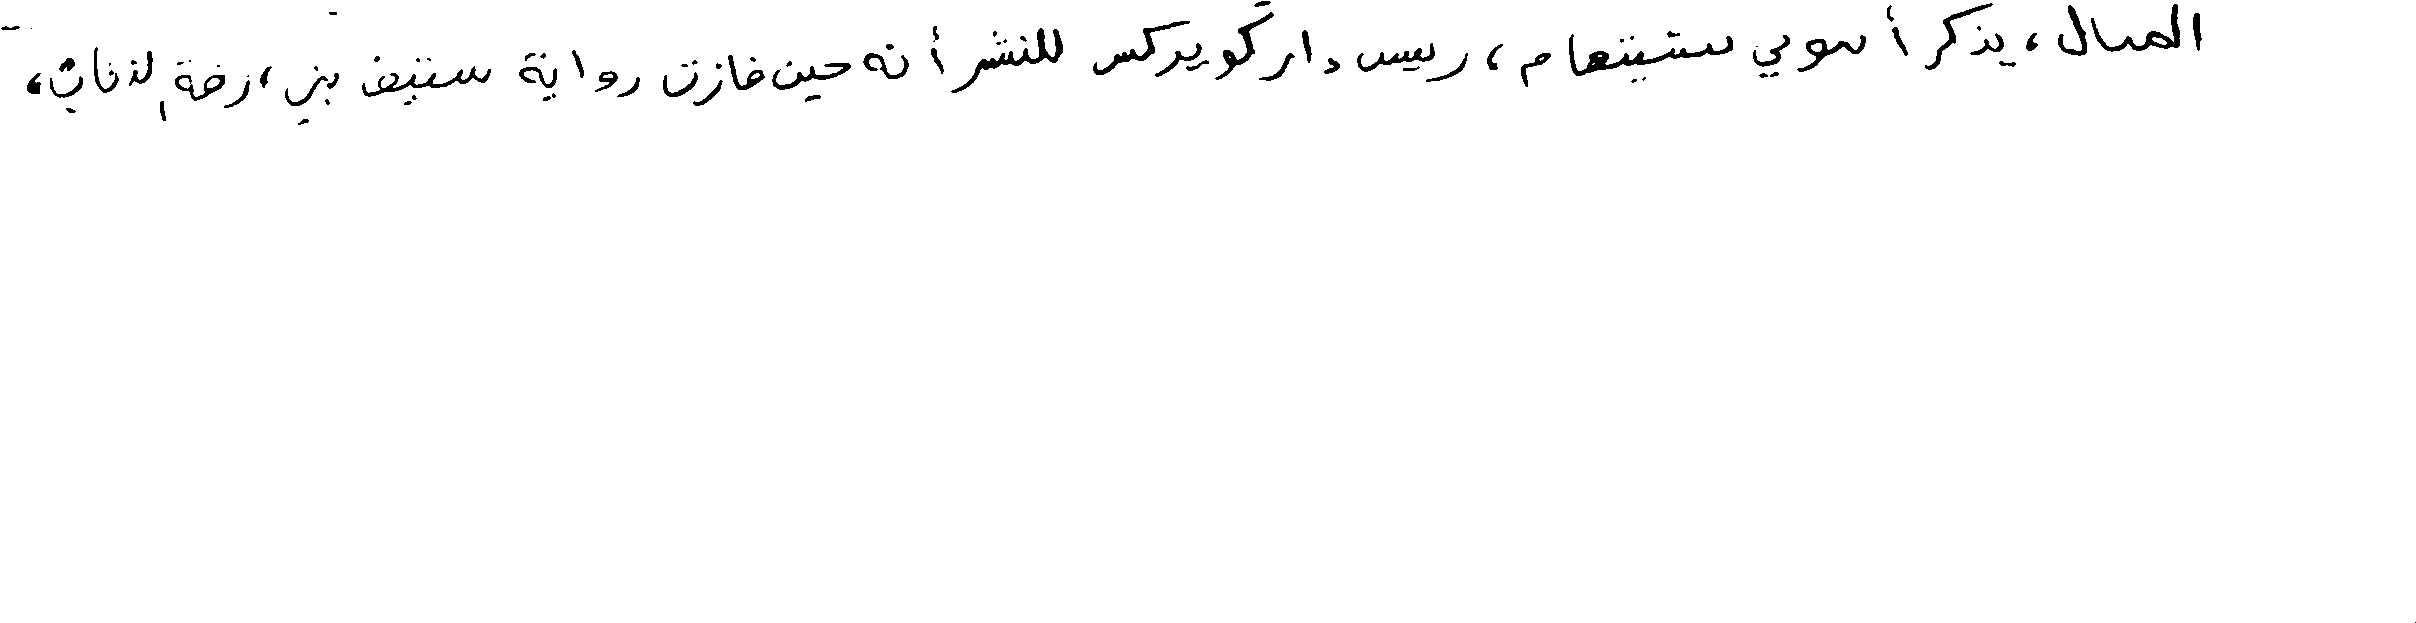 المسال، يذكر أ سوي ستيتهام، رييس دار كويركس للنشر أنه حين فازت رواية ستيف بني، رفة الذئاب،